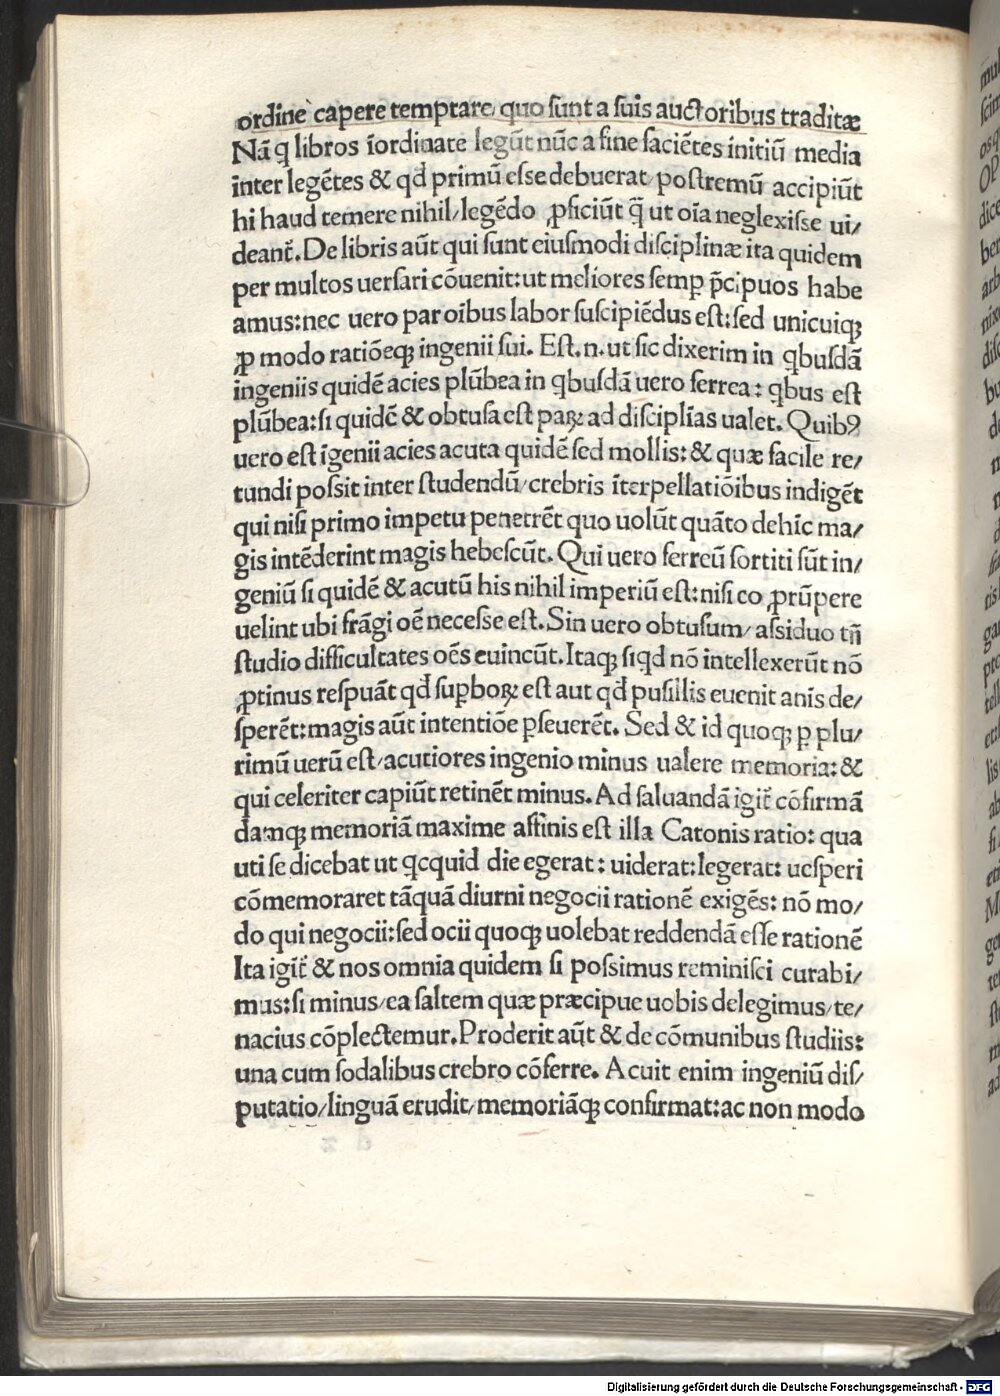 ordinē capere temptare/ quo ſunt a ſuis auctoribus traditæ
Nā q libros īordinate legūt nūc a fine faciētes initiū media
inter legētes & qđ primū eſſe debuerat/ poſtremū accipiūt
hi haud temere nihil/ legēdo ꝓficiūt q̄ ut oīa neglexiſſe ui/
deant̄. De libris aūt qui ſunt eiuſmodi diſciplinæ ita quidem
per multos uerſari cōuenit: ut meliores ſemꝑ p̄cipuos habe
amus: nec uero par oībus labor ſuſcipiēdus eſt: ſed unicuiqꝫ
ꝓ modo ratiōeqꝫ ingenii ſui. Eſt. n. ut ſic dixerim in qbuſdā
ingeniis quidē acies plūbea in qbuſdā uero ferrea: qbus eſt
plūbea: ſi quidē & obtuſa eſt paꝝ ad diſciplīas ualet. Quibꝰ
uero eſt īgenii acies acuta quidē ſed mollis: & quæ facile re/
tundi poſſit inter ſtudendū/ crebris īterpellatiōibus indigēt
qui niſi primo impetu penetrēt quo uolūt quāto dehīc ma/
gis intēderint magis hebeſcūt. Qui uero ferreū ſortiti ſūt in/
geniū ſi quidē & acutū his nihil imperiū eſt: niſi eo ꝓrūpere
uelint ubi frāgi oē neceſſe eſt. Sin uero obtuſum/ aſſiduo tn̄
ſtudio difficultates oēs euincūt. Itaqꝫ ſiqd nō intellexerūt nō
ꝓtinus reſpuāt qđ ſuꝑboꝝ eſt aut qđ puſillis euenit aīis de/
ſperēt: magis aūt intentiōe ꝑſeuerēt. Sed & id quoqꝫ ꝑ plu/
rimū uerū eſt/ acutiores ingenio minus ualere memoria: &
qui celeriter capiūt retinēt minus. Ad ſaluandā igit̄ cōfirmā
damqꝫ memoriā maxime affinis eſt illa Catonis ratio: qua
uti ſe dicebat ut qcquid die egerat: uiderat: legerat: ueſperi
cōmemoraret tāquā diurni negocii rationē exigēs: nō mo/
do qui negocii: ſed ocii quoqꝫ uolebat reddendā eſſe rationē
Ita igit̄ & nos omnia quidem ſi poſſimus reminiſci curabi/
mus: ſi minus/ ea ſaltem quæ præcipue uobis delegimus/ te/
nacius cōplectemur. Proderit aūt & de cōmunibus ſtudiis:
una cum ſodalibus crebro cōferre. Acuit enim ingeniū diſ/
putatio/ linguā erudit/ memoriāqꝫ confirmat: ac non modo
Digitalisierung gefördert durch die Deutsche Forschungsgemeinschaft - DFG